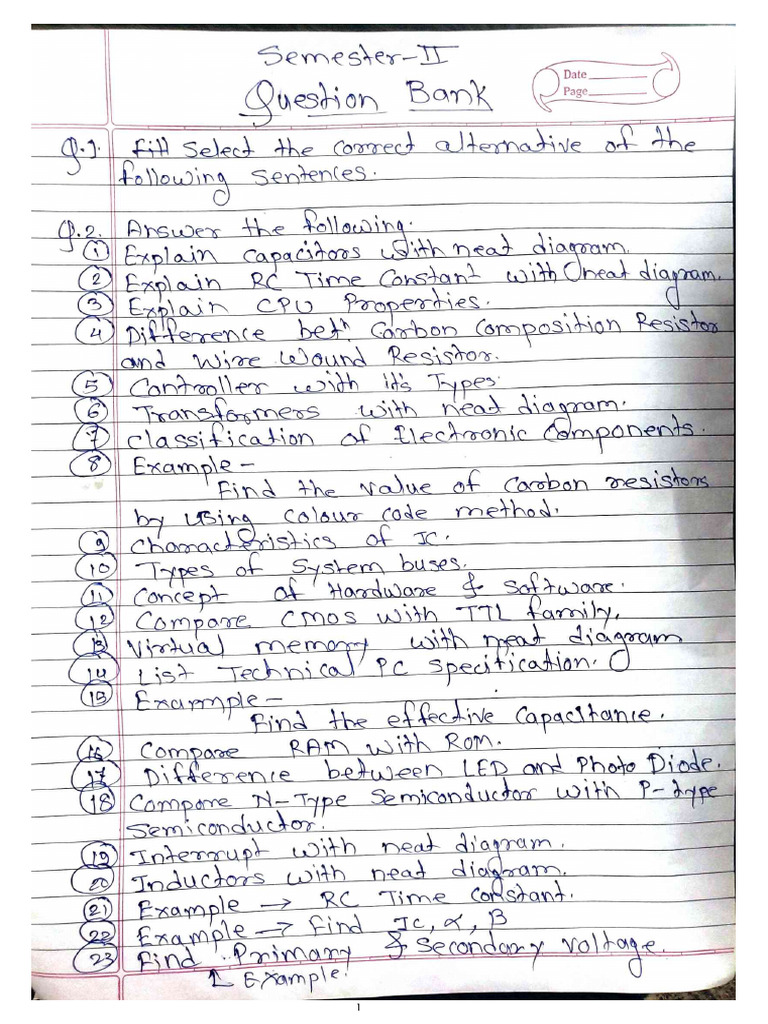 Semester-II
Question Bank
Date
Page
Q.1. Select the correct alternative of the
following sentences.
Q.2. Answer the following.
1 Explain capacitors with neat diagram.
2 Explain RC Time Constant with neat diagram.
3 Explain CPU Properties.
4 Difference betn. Carbon Composition Resistor
and Wire Wound Resistor.
5 Controller with it's Types.
6 Transformers with neat diagram.
7 Classification of Electronic Components.
8 Example -
Find the value of carbon resistors
by using colour code method.
9 Characteristics of IC.
10 Types of System buses.
11 Concept of Hardware & Software.
12 Compare CMOS with TTL family.
13 Virtual memory with neat diagram
14 List Technical PC specification.
15 Example -
Find the effective Capacitance.
16 Compare RAM with Rom.
17 Difference between LED and Photo Diode.
18 Compare N-Type Semiconductor with P-type
Semiconductor.
19 Interrupt with neat diagram.
20 Inductors with neat diagram.
21 Example → RC Time constant.
22 Example → Find Ic, α, β
23 Find Primary & Secondary voltage.
↑ Example.
1